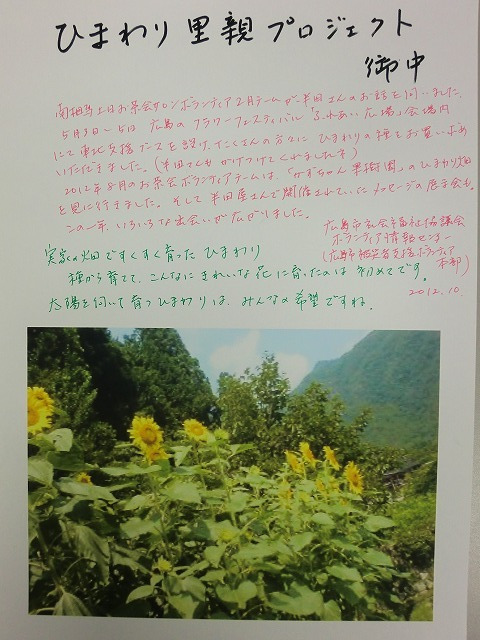 ひまわり里親プロジェクト
御中
お茶会サロンボランティア2月テーマが半田さんのお話を伺いました。
5月3日~5日 広島のフラワーフェスティバル「ふれあい広場」会場内
にて東北支援ブースを設け、たくさんの方々に ひまわりの種をお買い求め
いただきました。(半田さんも かけつけてくれましたネ)
2012年8月のお茶会ボランティアチームは、「かずちゃん果樹園」のひまわり畑
を見に行きました。そして 半田屋さんで開催されていた メッセージの展示会も。
この一年、いろいろな出会いが広がりました。
広島市社会福祉協議会
ボランティア情報センター
(広島市被災者支援ボランティア
本部)
2012.10
実家の畑ですくすく育った ひまわり
種から育てて、こんなにきれいな花に育ったのは 初めてです。
太陽を向いて育つひまわりは、みんなの希望ですね。